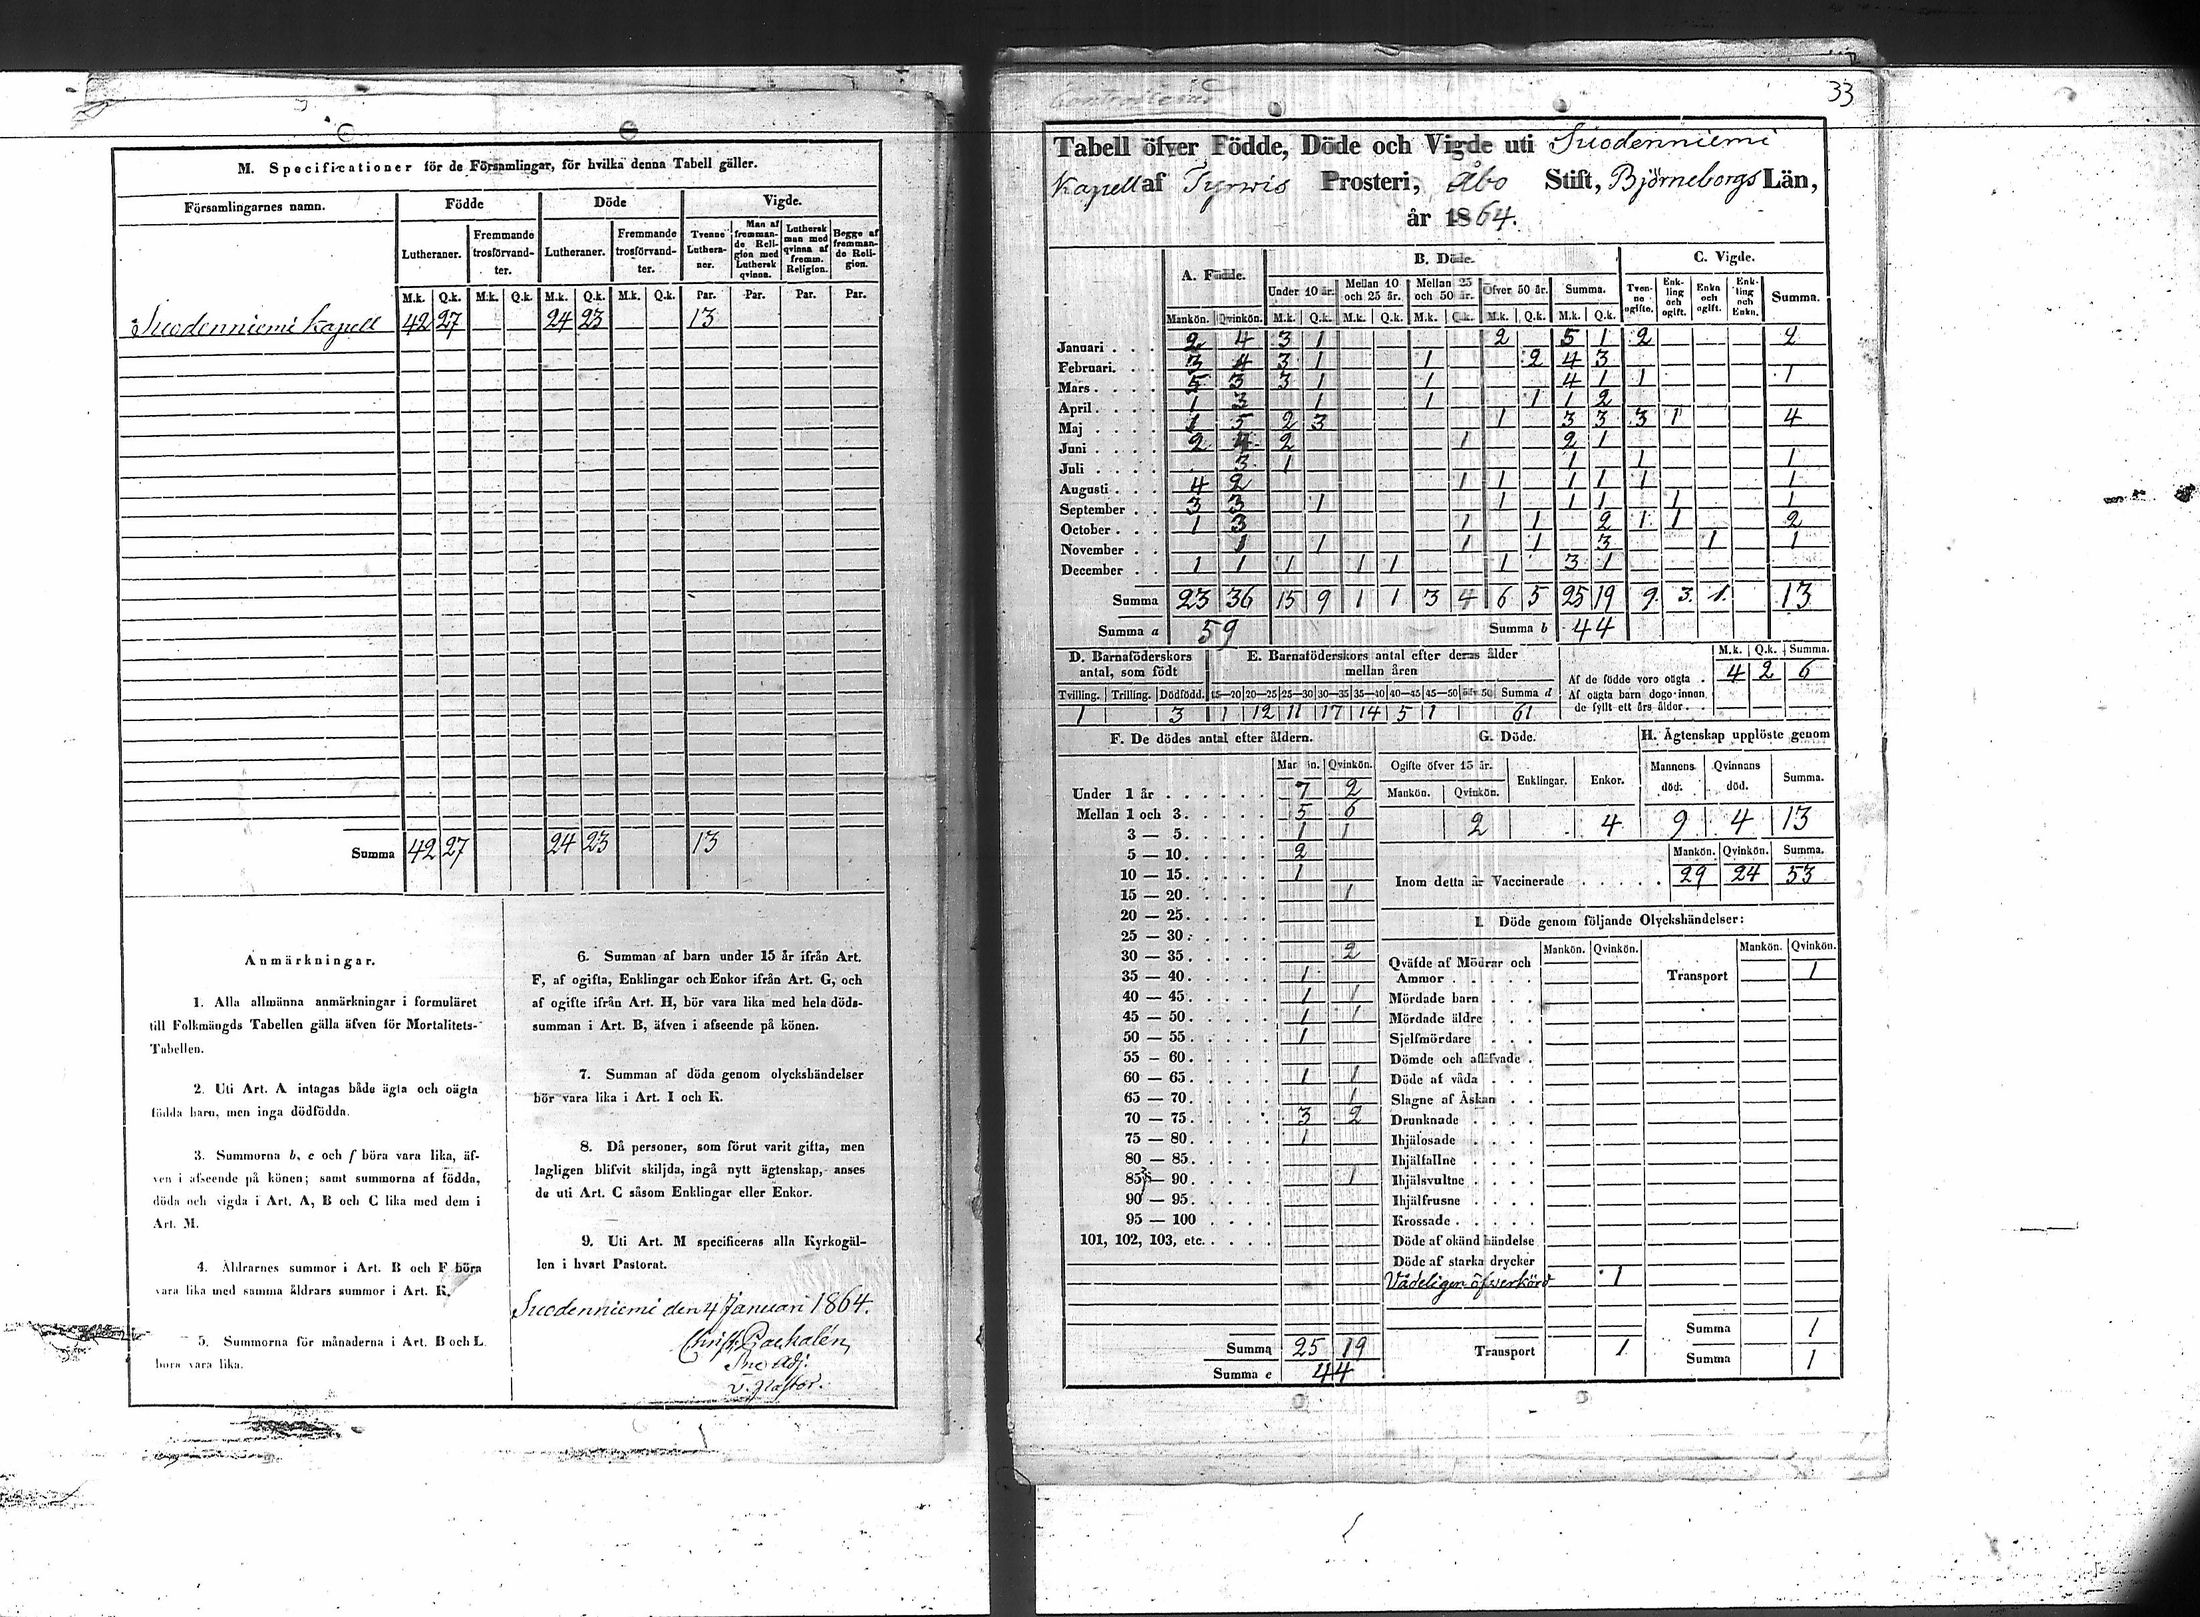 M. Specificationer för de Församlingar, för hvilka denna Tabell gäller.
Församlingarnes namn. Födde Döde Vigde.
Lutheraner. Fremmande trosförvandter. Lutheraner. Fremmande trosförvandter. Tvenne Lutheraner. Man af fremmande Religion med Luthersk qvinna. Luthersk man med qvinna af fremm. Religion. Begge af fremmande Religion.
M.k. Q.k. M.k. Q.k. M.k. Q.k. M.k. Q.k. Par. Par. Par. Par.
Suodenniemi Kapell 42 27 24 23 13
Summa 42 27 24 23 13
Anmärkningar.
1. Alla allmänna anmärkningar i formuläret
till Folkmängds Tabellen gälla äfven för Mortalitets-
Tabellen.
2. Uti Art. A intagas både ägta och oägta
födda barn, men inga dödfödda.
3. Summorna b, e och f böra vara lika, äf-
ven i afseende på könen; samt summorna af födda,
döda och vigda i Art. A, B och C lika med dem i
Art. M.
4. Åldrarnes summor i Art. B och F böra
vara lika med samma åldrars summor i Art. K.
5. Summorna för månaderna i Art. B och L
böra vara lika.
6. Summan af barn under 15 år ifrån Art.
F, af ogifta, Enklingar och Enkor ifrån Art. G, och
af ogifte ifrån Art. H, bör vara lika med hela döds-
summan i Art. B, äfven i afseende på könen.
7. Summan af döda genom olyckshändelser
bör vara lika i Art. I och K.
8. Då personer, som förut varit gifta, men
lagligen blifvit skiljda, ingå nytt ägtenskap, anses
de uti Art. C såsom Enklingar eller Enkor.
9. Uti Art. M specificeras alla Kyrkogäl-
len i hvart Pastorat.
Suodenniemi den 4 Januari 1864.
v. Pastor.
33
Tabell öfver Födde, Döde och Vigde uti Suodenniemi
Kapell af Tyrwis Prosteri, Åbo Stift, Björneborgs Län,
år 1864.
A. Födde. B. Döde. C. Vigde.
Under 10 år. Mellan 10 och 25 år. Mellan 25 och 50 år. Öfver 50 år. Summa. Tvenne ogifte. Enkling och ogift. Enka och ogift. Enkling och Enka. Summa.
Mankön. Qvinkön. M.k. Q.k. M.k. Q.k. M.k. Q.k. M.k. Q.k. M.k. Q.k.
Januari 2 4 3 1 2 5 1 2 2
Februari 3 4 3 1 1 2 4 3
Mars 5 3 3 1 1 4 1 1 1
April 1 3 1 1 1 1 2
Maj 1 5 2 3 1 3 3 3 1 4
Juni 2 4 2 1 2 1
Juli 3 1 1 1 1
Augusti 4 2 1 1 1 1 1 1
September 3 3 1 1 1 1 1 1
October 1 3 1 1 2 1 1 2
November 1 1 1 1 3 1 1
December 1 1 1 1 1 1 3 1
Summa 23 36 15 9 1 1 3 4 6 5 25 19 9 3 1 13
Summa a 59 Summa b 44
D. Barnaföderskors antal, som födt
E. Barnaföderskors antal efter deras ålder mellan åren
M.k. Q.k. Summa.
Af de födde voro oägta 4 2 6
Af oägta barn dogo innan de fyllt ett års ålder.
Tvilling. Trilling. Dödfödd. 15—20 20—25 25—30 30—35 35—40 40—45 45—50 öfv. 50 Summa d
1 3 1 12 11 17 14 5 1 61
F. De dödes antal efter åldern.
Mankön. Qvinkön.
Under 1 år 7 2
Mellan 1 och 3 5 6
3 — 5 1 1
5 — 10 2
10 — 15 1
15 — 20 1
20 — 25
25 — 30
30 — 35 2
35 — 40 1
40 — 45 1 1
45 — 50 1 1
50 — 55 1
55 — 60
60 — 65 1 1
65 — 70 1
70 — 75 3 2
75 — 80 1
80 — 85
85 — 90 1
90 — 95
95 — 100
101, 102, 103, etc.
Summa 25 19
Summa e 44
G. Döde.
Ogifte öfver 15 år. Enklingar. Enkor.
Mankön. Qvinkön.
2 4
H. Ägtenskap upplöste genom
Mannens död. Qvinnans död. Summa.
9 4 13
Mankön. Qvinkön. Summa.
Inom detta år Vaccinerade 29 24 53
I. Döde genom följande Olyckshändelser:
Mankön. Qvinkön. Mankön. Qvinkön.
Qväfde af Mödrar och Ammor Transport 1
Mördade barn
Mördade äldre
Sjelfmördare
Dömde och aflifvade
Döde af våda
Slagne af Åskan
Drunknade
Ihjälosade
Ihjälfallne
Ihjälsvultne
Ihjälfrusne
Krossade
Döde af okänd händelse
Döde af starka drycker
Vådeligen öfverkörd 1
Summa 1
Transport 1 Summa 1